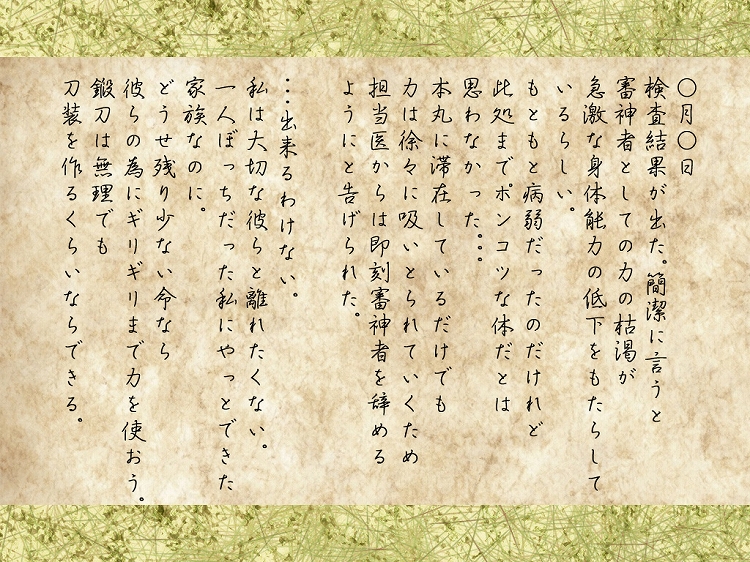 〇月〇日
検査結果が出た。簡潔に言うと
審神者としての力の枯渇が
急激な身体能力の低下をもたらして
いるらしい。
もともと病弱だったのだけれど
此処までポンコツな体だとは
思わなかった。。。
本丸に滞在しているだけでも
力は徐々に吸いとられていくため
担当医からは即刻審神者を辞める
ようにと告げられた。
…出来るわけない。
私は大切な彼らと離れたくない。
一人ぼっちだった私にやっとできた
家族なのに。
どうせ残り少ない命なら
彼らの為にギリギリまで力を使おう。
鍛刀は無理でも
刀装を作るくらいならできる。